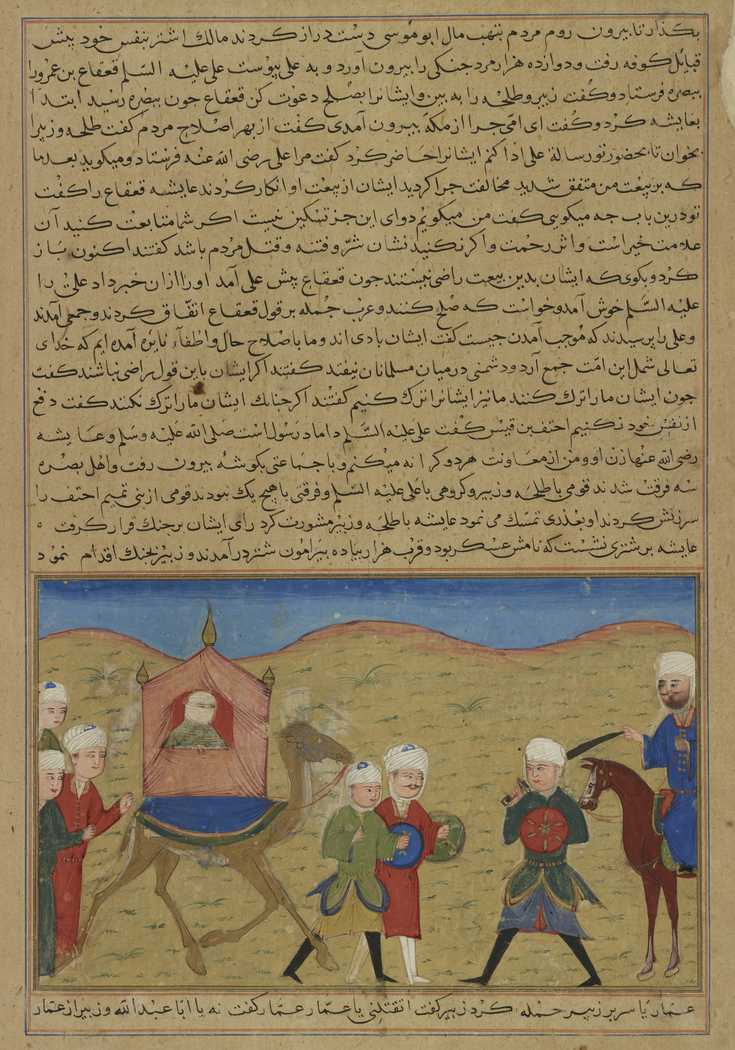 بکذار تا بیرون روم مردم بنهب مال ابوموسی دست دراز کردند مالک اشتر بنفس خود پیش
قبائل کوفه رفت و دوازده هزار مرد جنکی را بیرون آورد و به علی پیوست علی علیه السلم قعقاع بن عمرو را
ببصره فرستاد و کفت زبیر و طلحه را به بین و ایشانرا بصلح دعوت کن قعقاع جون ببصره رسید ابتدا
بعایشه کرد و کفت ای امی جرا از مکه بیرون آمدی کفت از بهر اصلاح مردم کفت طلحه و زبیر را
بخوان تا بحضور تو رسالة علی ادا کنم ایشانرا حاضر کرد کفت مرا علی رضی الله عنه فرستاد و میکوید بعد ما
که بر بیعت من متفق شدید مخالفت جرا کردید ایشان از بیعت او انکار کردند عایشه قعقاع را کفت
تو درین باب جه میکویی کفت من میکویم دوای این جز تسکین نیست اکر شما متابعت کنید آن
علامت خیر است و اثر رحمت و اکر نکنید نشان شر و فتنه و قتل مردم باشد کفتند اکنون باز
کرد و بکوی که ایشان بدین بیعت راضی نیستند جون قعقاع پیش علی آمد او را ازان خبر داد علی را
علیه السلم خوش آمد و خواست که صلح کنند و عرب جمله بر قول قعقاع اتفاق کردند و جمعی آمدند
و علی را پرسیدند که موجب آمدن جیست کفت ایشان بادی اند و ما باصلاح حال و اطفاء نایره آمده ایم که خدای
تعالی شمل این امت جمع آرد و دشمنی در میان مسلمانان نیفتد کفتند اکر ایشان باین قول راضی نباشند کفت
جون ایشان ما را ترک کنند ما نیز ایشانرا ترک کنیم کفتند اکر جنانک ایشان ما را ترک نکنند کفت دفع
از نفس خود نکنیم احنف بن قیس کفت علی علیه السلم داماد رسول است صلی الله علیه وسلم و عایشه
رضی الله عنها زن او و من از معاونت هر دو کرانه میکنم و با جماعتی بکوشه بیرون رفت و اهل بصره
سه فرقت شدند قومی با طلحه و زبیر و کروهی با علی علیه السلم و فرقتی با هیج یک نبودند قومی از بنی تمیم احنف را
سرزنش کردند او بعذری تمسک می نمود عایشه با طلحه و زبیر مشورت کرد رای ایشان بر جنک قرار کرفت
عایشه بر شتری نشست که نامش عسکر بود و قرب هزار پیاده پیرامون شتر در آمدند و زبیر بجنک اقدام نمود
عمار یاسر بر زبیر حمله کرد زبیر کفت اتقتلنی یا عمار عمار کفت نه یا ابا عبد الله و زبیر از عمار